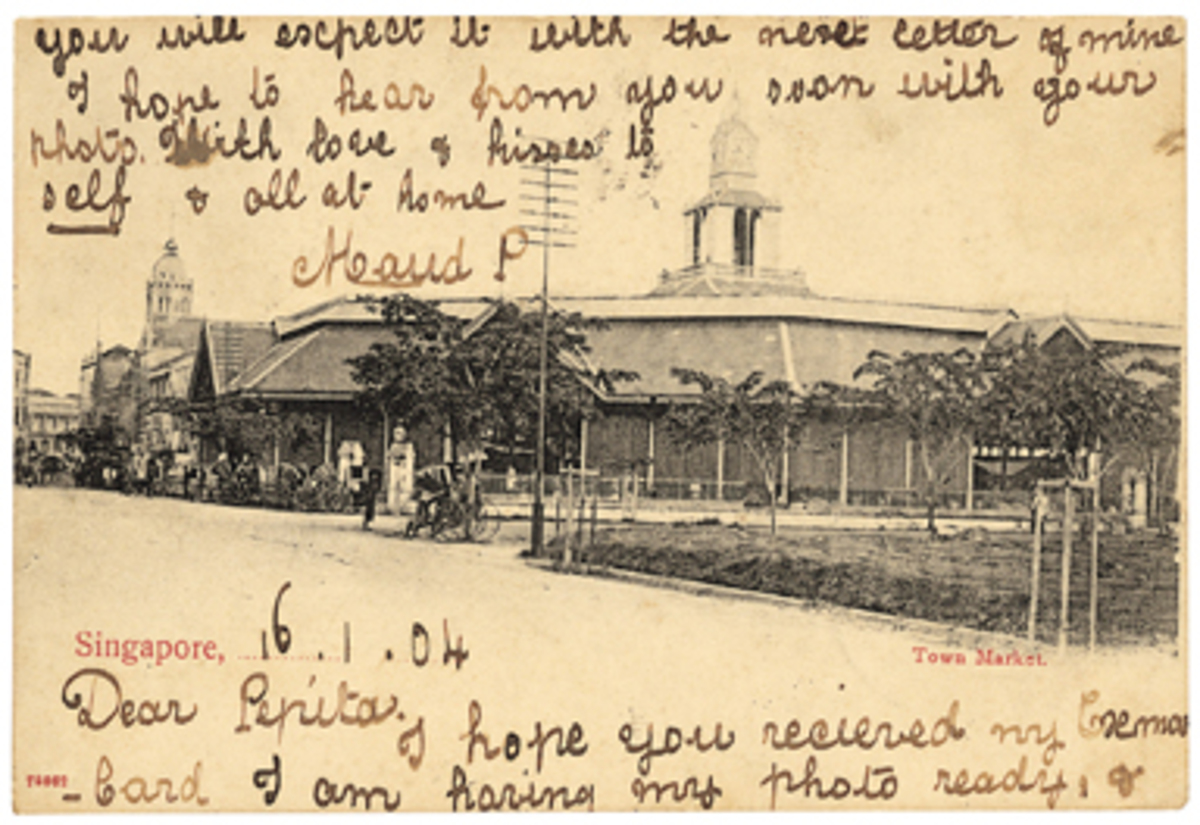 you will expect it with the next letter of mine
I hope to hear from you soon with your
photo. With love & kisses to
self & all at home
Maud P
Singapore, 16.1.04
Town Market.
Dear Pepita.
I hope you recieved my Xmas
-Card I am having my photo ready, &